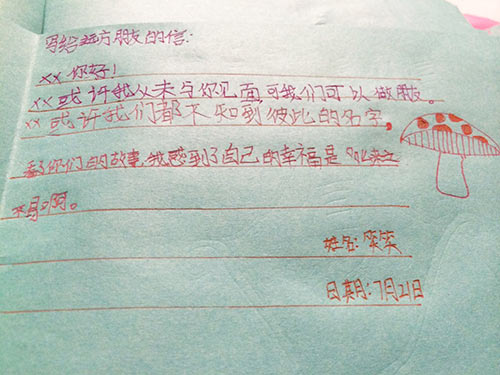 写给远方朋友的信:
xx你好!
xx或许我从未与你见面可我们可以做朋友。
xx或许我们都不知到彼此的名字,
看了你们的故事我感到了自己的幸福是
啊。
姓名:笑笑
日期:7月21日